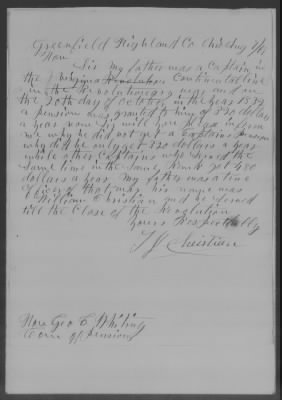 Greenfield Highland Co Ohio Aug
Hon
Sir my father was a Captain in
the Virginia Continental line
in the Revolutionary war and on
the 20th day of October in the year 1832
a pension was granted to him of 320 dollars
a year now Sir will you pleas inform
me why he did not get a Captains pension
why did he only get 320 dollars a year
while other Captains who served the
same time in the same got 480
dollars a year my father was a
officer that may his name was
William Christian and he served
till the Close of the Revolution
yours Respectfully
Christian
Hon Geo C Whiting
Com of pensions